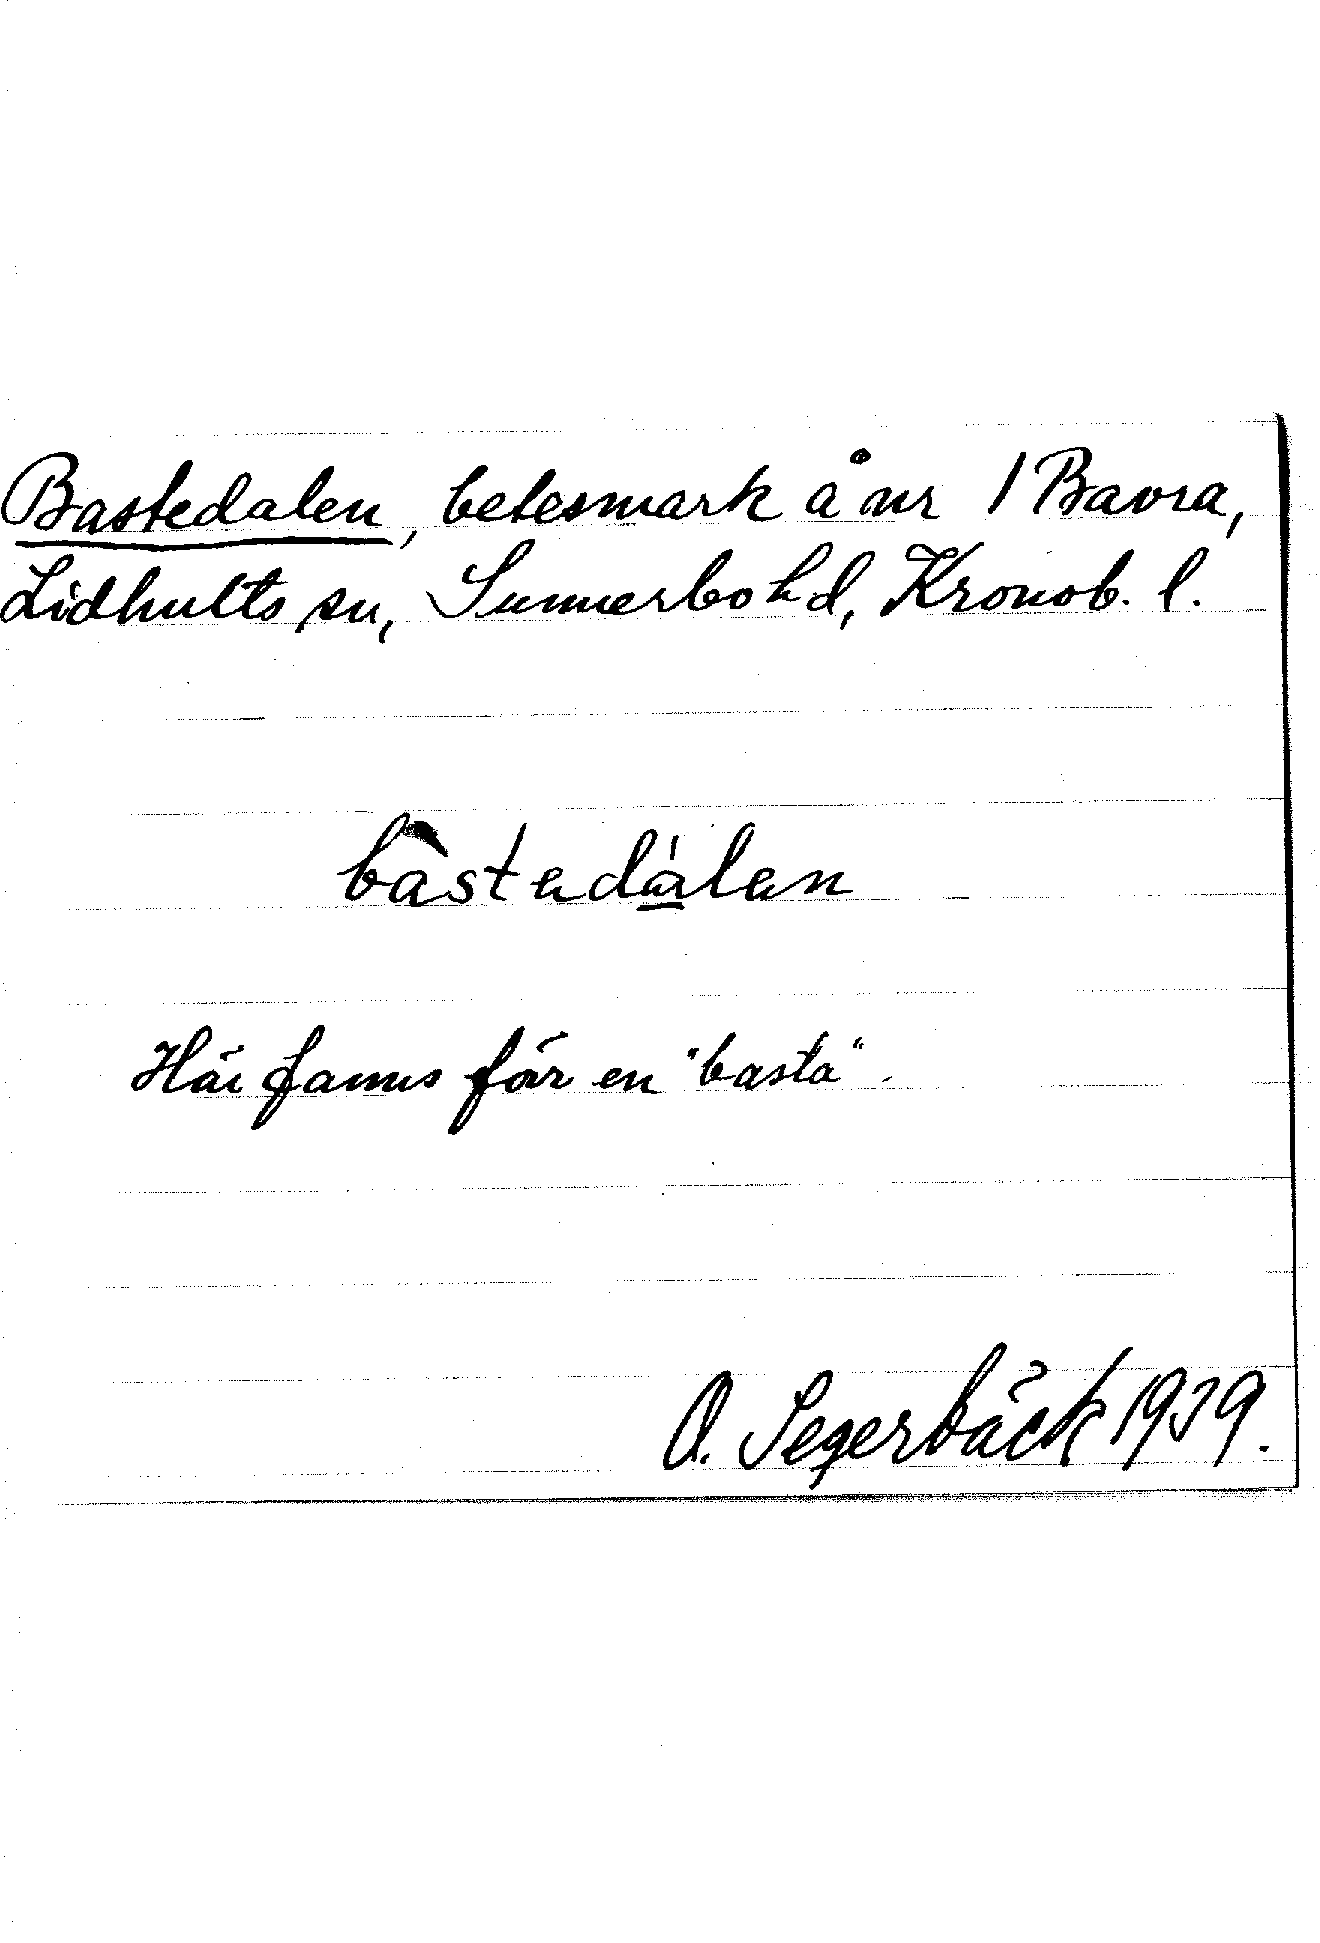 Bastedalen, betesmark å nr 1 Bavra,
Lidhults sn, Sunnerbo hd, Kronob. l.
bàstedàlen
Här fanns för en "basta".
O. Segerbäck 1939.